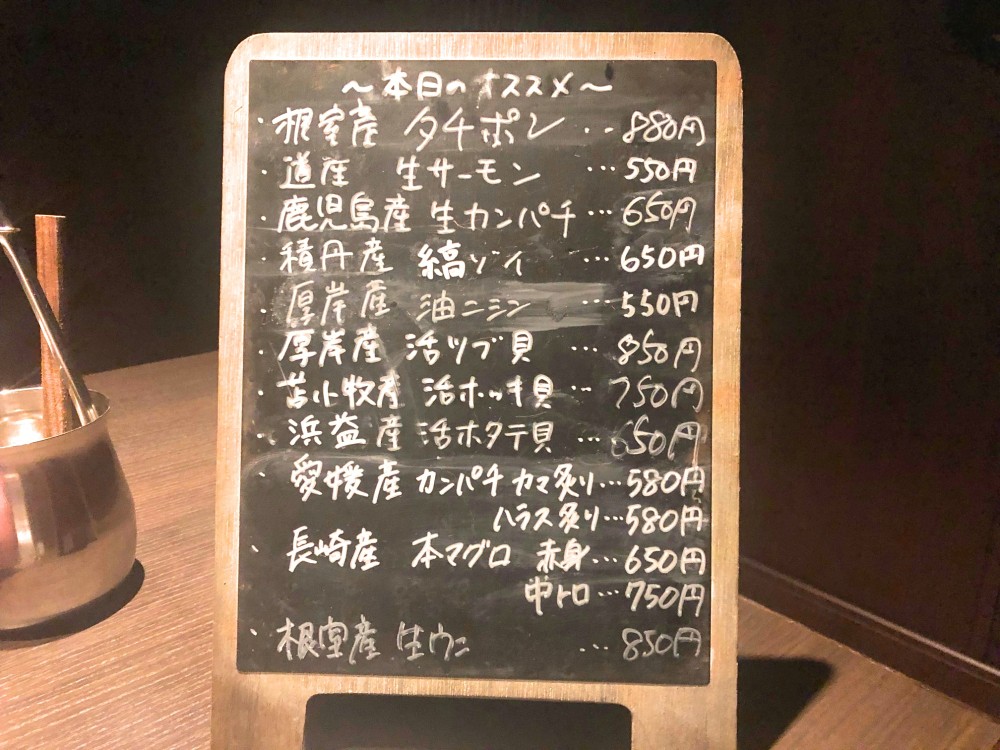 ～本日のオススメ～
・根室産 タチポン ・・ 880円
・道産 生サーモン ・・・550円
・鹿児島産 生カンパチ・・・650円
・積丹産 縞ゾイ ・・・650円
・厚岸産 油ニシン ・・・550円
・厚岸産 活ツブ貝 ・・・850円
・苫小牧産 活ホッキ貝 ・・・750円
・浜益産 活ホタテ貝 ・・・650円
・愛媛産 カンパチ カマ炙り・・・580円
ハラス炙り・・・580円
・長崎産 本マグロ 赤身・・・650円
中トロ・・・750円
・根室産 生ウニ ・・・850円